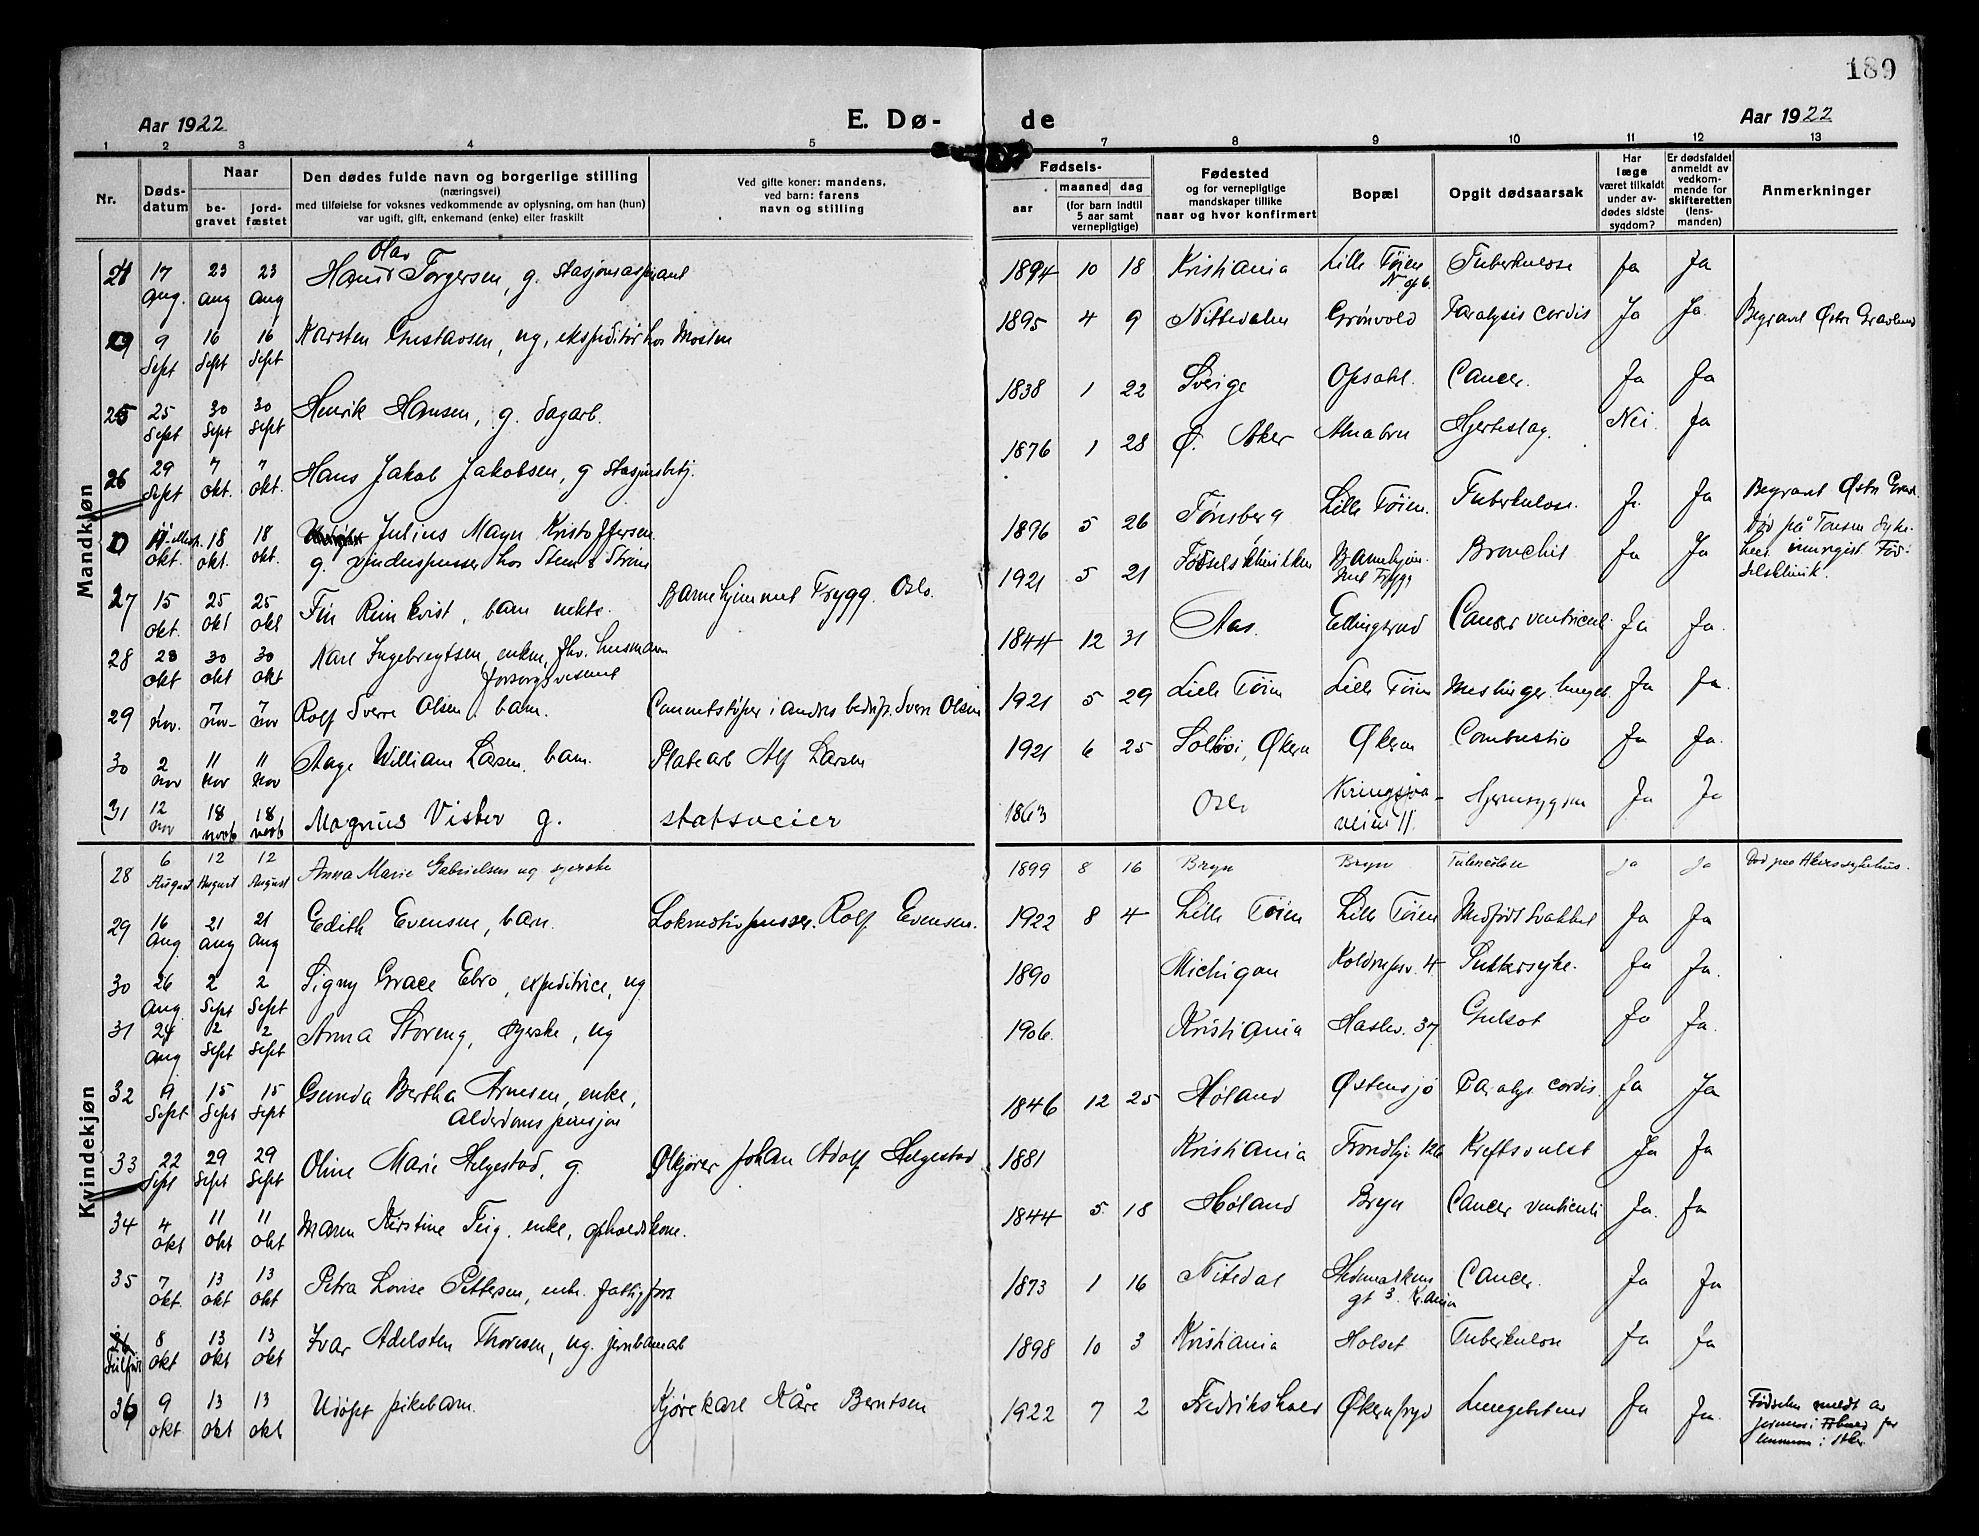 189
Aar 1922
E. Dø-
de
Aar 1922
1 2 3 4 5 7 8 9 10 11 12 13
Nr.
Døds-
datum
Naar
be-
gravet
jord-
fæstet
Den dødes fulde navn og borgerlige stilling
(næringsvei)
med tilføielse for voksnes vedkommende av oplysning, om han (hun)
var ugift, gift, enkemand (enke) eller fraskilt
Ved gifte koner: mandens,
ved barn: farens
navn og stilling
Fødsels-
aar
maaned dag
(for barn indtil
5 aar samt
vernepligtige)
Fødested
og for vernepligtige
mandskaper tillike
naar og hvor konfirmert
Bopæl
Opgit dødsaarsak
Har
læge
været tilkaldt
under av-
dødes sidste
sygdom?
Er dødsfaldet
anmeldt av
vedkom-
mende for
skifteretten
(lens-
manden)
Anmerkninger
Mandkjøn
24 17 Aug. 23 aug 23 aug Hans Olav Torgersen, g. stasjonsaspirant 1894 10 18 Kristiania Lille Tøien Ja Ja Tuberkulose
9 Sept 16 Sept 16 Sept Karsten Gustavsen, ug, ekspeditør hos Mosten 1895 4 9 Nittedalen Grønvold Paralysis cordis Ja Ja Begravet Østre Gravlund
25 25 Sept 30 Sept 30 Sept Henrik Hansen, g. dagarb. 1838 1 22 Sverige Opsahl. Cancer. Ja Ja
26 29 Sept 7 okt. 7 okt. Hans Jakob Jakobsen, g stasjonsbetj. 1876 1 28 Ø. Aker Alnabru Hjerteslag. Nei. Ja
okt. 18 okt. 18 okt. Julius Magn Kristoffersen
g. vinduspusser hos Steen & Strøm 1896 5 26 Tønsberg Lille Tøien. Tuberkulose. Ja Ja Begravet Østre Grav.
27 15 okt. 25 okt 25 okt Fin Reinkvist, barn uekte. Barnehjemmet Trygg. Oslo. 1921 5 21 Fødselsklinikken Barnehjem. Trygg Bronchit Ja Ja Død på Tonsen Syke-
28 23 okt 30 okt 30 okt Karl Ingebregtsen, enkem, fhv. husmann
forsorgsvesenet 1844 12 31 Aas. Ellingsrud Cancer ventricul. Ja Ja.
29 1 nov. 7 nov- 7 nov Rolf Sverre Olsen, barn. Cementstøper i andres bedrift. Sverre Olsen 1921 5 29 Lille Tøien Lille Tøien Meslinger. lunge Ja Ja.
30 2 nov 11 nov 11 nov Aage William Larsen, barn. Platearb Alf Larsen 1921 6 25 Solbøi, Økern Økern Combustio Ja Ja.
31 12 nov 18 novb 18 novb Magnus Vister g. statsveier 1863 Oslo Kringsjaa-
veien 11 Hjernesygdom Ja Ja
Kvindekjøn
28 6 August 12 August 12 August Anna Marie Gabrielsen ug syerske 1899 8 16 Bryn Bryn Tuberculose ja ja Død paa Akers sykehus.
29 16 Aug 21 aug 21 aug Edith Evensen, barn. Lokmotivpusser. Rolf Evensen. 1922 8 4 Lille Tøien Lille Tøien Medfødt svakhet Ja Ja
30 26 Aug. 2 Sept 2 Sept Signy Grace Ebro, expeditrice, ug 1890 Michigan 4 Sukkersyke. Ja Ja.
31 24 aug 2 Sept 2 Sept Anna Storeng, syerske, ug 1906. Kristiania Haslev. 37 Gulsot Ja Ja.
32 9 Sept. 15 Sept 15 Sept Gunda Bertha Arnesen, enke,
alderdomspensjon 1846 12 25 Høland Østensjø Paralys cordis. Ja Ja
33 22 Sept 29 Sept 29 Sept Oline Marie Helgestad, g. Ølkjører Johan Adolf Helgestad 1881 Kristiania Trondhjv 126 Kreftsvulst Ja Ja
34 4 okt 11 okt 11 okt Maren Kirstine Teig. enke, opholdskone. 1844 5 18 Høland Bryn Cancer ventriculi Ja. Ja
35 7 okt. 13 okt 13 okt Petra Lovise Pettersen, enke. fattigfors 1873 1 16 Nitedal Hedemarkens
gt 3. Kr.ania Cancer. Ja Ja
8 okt 13 okt 13 okt Ivar Adelsten Thoresen, ug. jernbanearb 1898 10 3 Kristiania Holset Tuberkulose Ja Ja
36 9 okt. 13 okt 13 okt Udøpt pikebarn. Kjørekarl Kåre Berntsen 1922 7 2 Fredrikshald Økernfryd Lungebetend Ja Ja. Fødselen meldt av